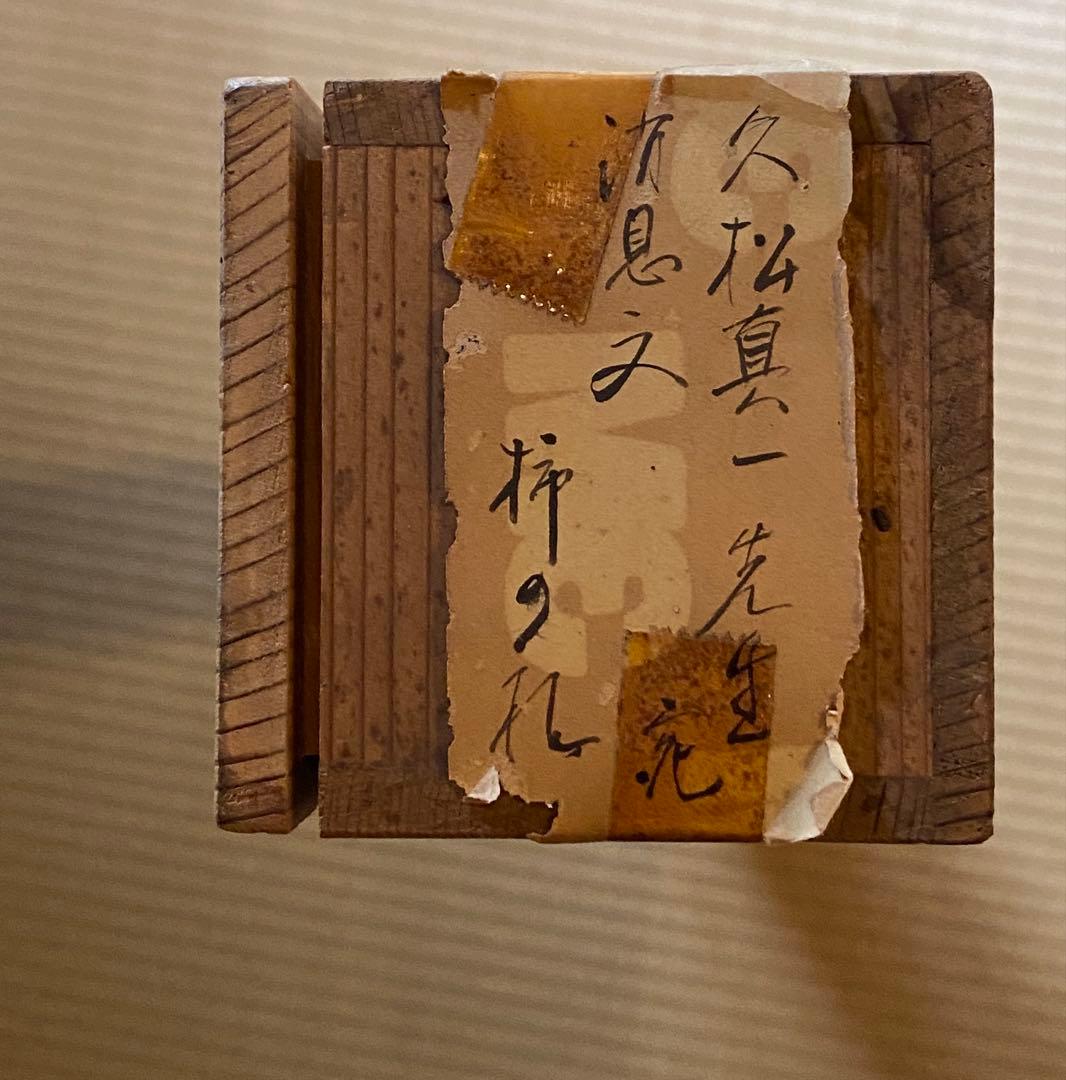 久松真一先生宛
消息文
柿の礼